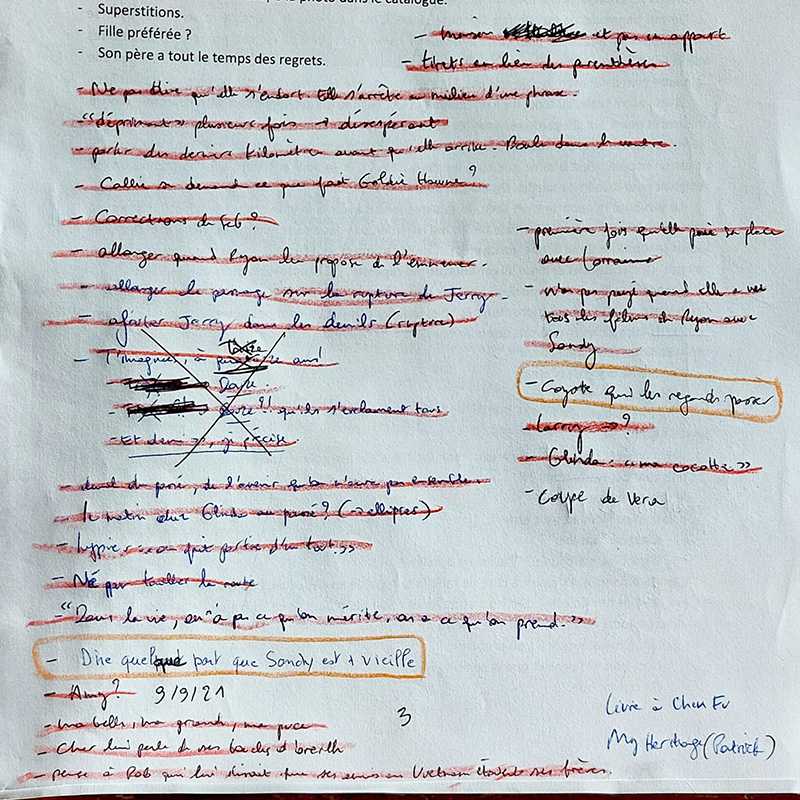 la photo dans le catalogue.
- Superstitions.
- Fille préférée ?
- Son père a tout le temps des regrets.
- maison et pas un appart
- tirets au lieu des parenthèses
- Ne pas dire qu'elle s'endort. Elle s'arrête au milieu d'une phrase.
- "déprimant" plusieurs fois → désespérant
- parler des derniers kilomètres avant qu'elle arrive. Boule dans le ventre.
- Callie se demande ce que fait Goldie Hawne ?
- Corrections de Seb ?
- allonger quand Ryan lui propose de l'emmener.
- allonger le passage sur la rupture de Jerry.
- ajouter Jerry dans les deuils (rupture)
- T'imagines, à ans !
- Dave.
- !! qu'ils s'exclament tous
- Et demi », je précise.
- deuil du passé, de l'avenir qu'on n'aura pas ensemble.
- le matin chez Glinda au passé ? (→ ellipses)
- hippies : on fait partie d'un tout. »
- Ne pas tailler la route
- "Dans la vie, on n'a pas ce qu'on mérite, on a ce qu'on prend. »
- Dire quelque part que Sandy est + vieille
- Amy ? 9/9/21
- ma belle, ma grande, ma puce
- Cher lui parle de ses boucles d'oreille
- pense à Rob qui lui disait que ses amis au Vietnam étaient ses frères.
- première fois qu'elle prend sa place
avec Lorraine
- n'a pas pigé quand elle a vu
tous les films de Ryan avec
Sandy
- Coyote qui les regarde passer
- Larry → ?
- Glinda : « ma cocotte »
- Coupe de Vera
3
Livre à Chen Fu
My Heritage (Patrick)